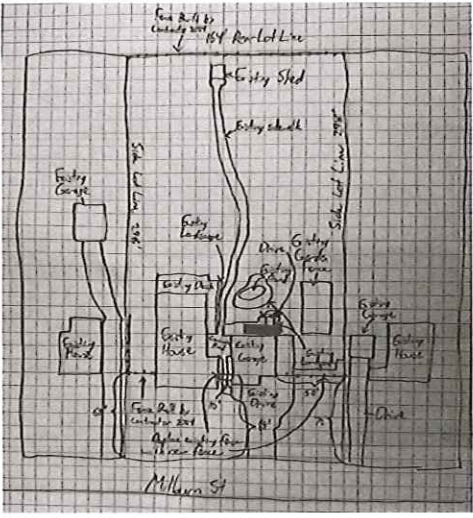 Fence Built by
Contractor 2004
154' Rear Lot Line
Existing Shed
Existing sidewalk
Side Lot Line 298'
Side Lot Line 298'
Existing
Garage
Existing
Landscape
Drive
Existing
Garden
Fence
Existing
Pond
Existing Deck
Existing
Garage
Existing
House
Existing
House
Existing
Garage
Existing
House
Existing
Drive
Drive
Fence Built by
Contractor 2004
Replace existing fence
50'
Milburn St